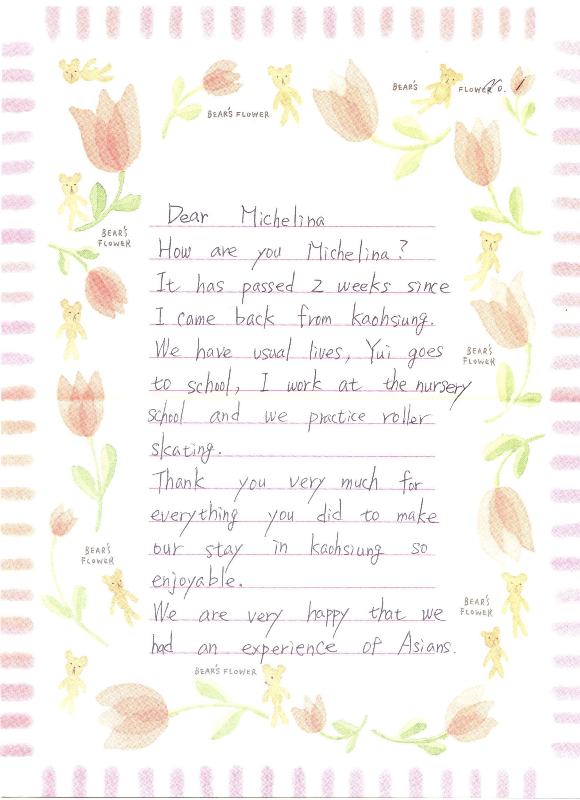 BEAR'S FLOWER No. 1
BEAR'S FLOWER
Dear Michelina
BEAR'S
FLOWER
How are you Michelina?
It has passed 2 weeks since
I came back from kaohsiung.
We have usual lives, Yui goes
BEAR'S
FLOWER
to school, I work at the nursery
school and we practice roller
skating.
Thank you very much for
everything you did to make
our stay in kaohsiung so
BEAR'S
FLOWER
enjoyable.
We are very happy that we
BEAR'S
FLOWER
had an experience of Asians.
BEAR'S FLOWER